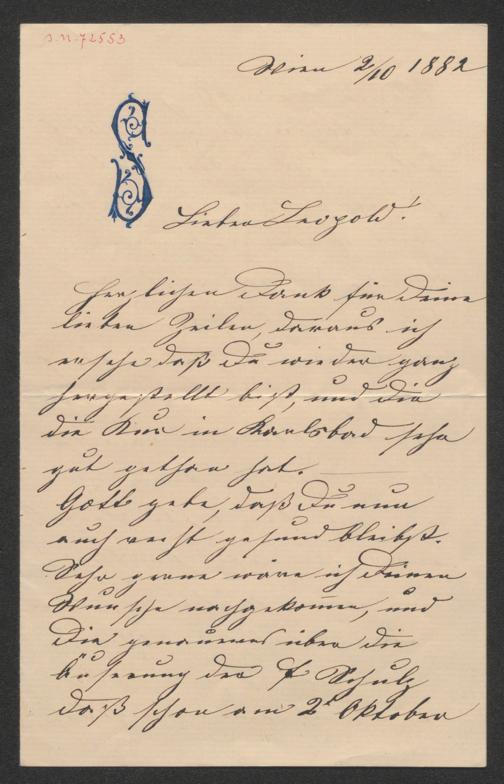 J.N. 72553
Wien 2/10 1882
S
Lieber Leopold!
Herzlichen Dank für Deine
lieben Zeilen, daraus ich
ersehe daß Du wieder ganz
hergestellt bist, und Dir
die Kur in Karlsbad sehr
gut gethan hat.
Gott gebe, daß Du nun
auch recht gesund bleibst.
Sehr gerne wäre ich Deinen
Wunsche nachgekommen, und
Dir genaueres über die
Äußerung der F Schulz
daß schon am 2t Oktober